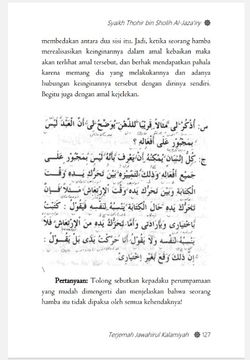 Syaikh Thohir bin Sholih Al-Jaza'iry
membedakan antara dua sisi itu. Jadi, ketika seorang hamba
merealisasikan keinginannya dalam amal kebaikan maka
akan terlihat amal tersebut, dan berhak mendapatkan pahala
karena memang dia yang melakukannya dan adanya
hubungan keinginannya tersebut dengan dirinya sendiri.
Begitu juga dengan amal kejelekan.
س: أُذْكُرْ لِي مِثَالًا قَرِيبًا لِلذِّهْنِ يُوَضِّحُ لِي أَنَّ الْعَبْدَ لَيْسَ
بِمَجْبُورٍ عَلَى أَفْعَالِهِ ؟
ج: كُلُّ إِنْسَانٍ يُمْكِنُهُ أَنْ يَعْرِفَ بِأَنَّهُ لَيْسَ بِمَجْبُورٍ عَلَى
جَمِيعِ أَفْعَالِهِ وَذَلِكَ لِتَمْيِيزِهِ بَيْنَ تَحَرُّكِ يَدِهِ وَقْتَ
الْكِتَابَةِ وَبَيْنَ تَحَرُّكِ يَدِهِ وَقْتَ الْاِرْتِعَاشِ مَثَلًا فَإِنَّ
تَحَرُّكَ يَدِهِ حَالَ الْكِتَابَةِ يَنْسُبُهُ لِنَفْسِهِ فَيَقُولُ: كَتَبْتُ
بِاخْتِيَارِي وَبِإِرَادَتِي وَأَمَّا تَحَرُّكُ يَدِهِ مِنَ الْاِرْتِعَاشِ
فَلَا يَنْسُبُهُ لِنَفْسِهِ وَلَا يَقُولُ أَنَا حَرَّكْتُ يَدِي بَلْ يَقُولُ:
إِنَّ ذَلِكَ وَقَعَ بِغَيْرِ اخْتِيَارِي.
Pertanyaan: Tolong sebutkan kepadaku perumpamaan
yang mudah dimengerti dan menjelaskan bahwa seorang
hamba itu tidak dipaksa oleh semua kehendaknya!
Terjemah Jawahirul Kalamiyah 127